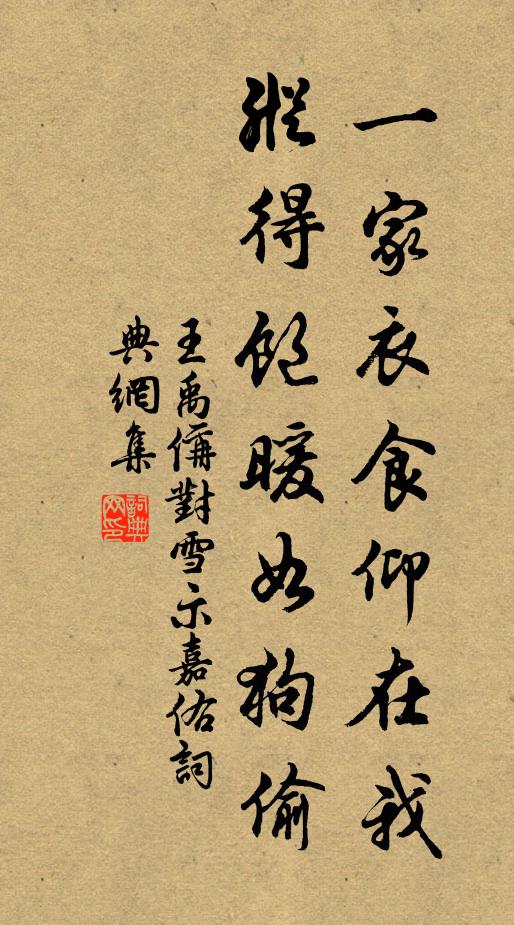 一家衣食仰在我
縱得飽暖如狗偷
王禹偁對雪示嘉佑詞
典網集
詞典網印